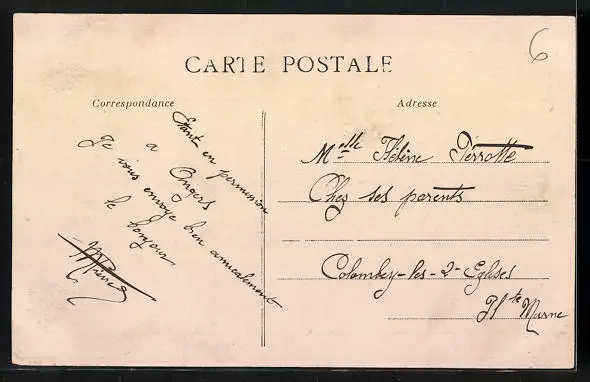 6
CARTE POSTALE
Correspondance
Adresse
Etant en permission
a
Angers
Je vous envoye bien amicalement
le bonjour
Melle Hélène Perrotte
Chez ses parents
Colombey-les-2-Eglises
Hte Marne